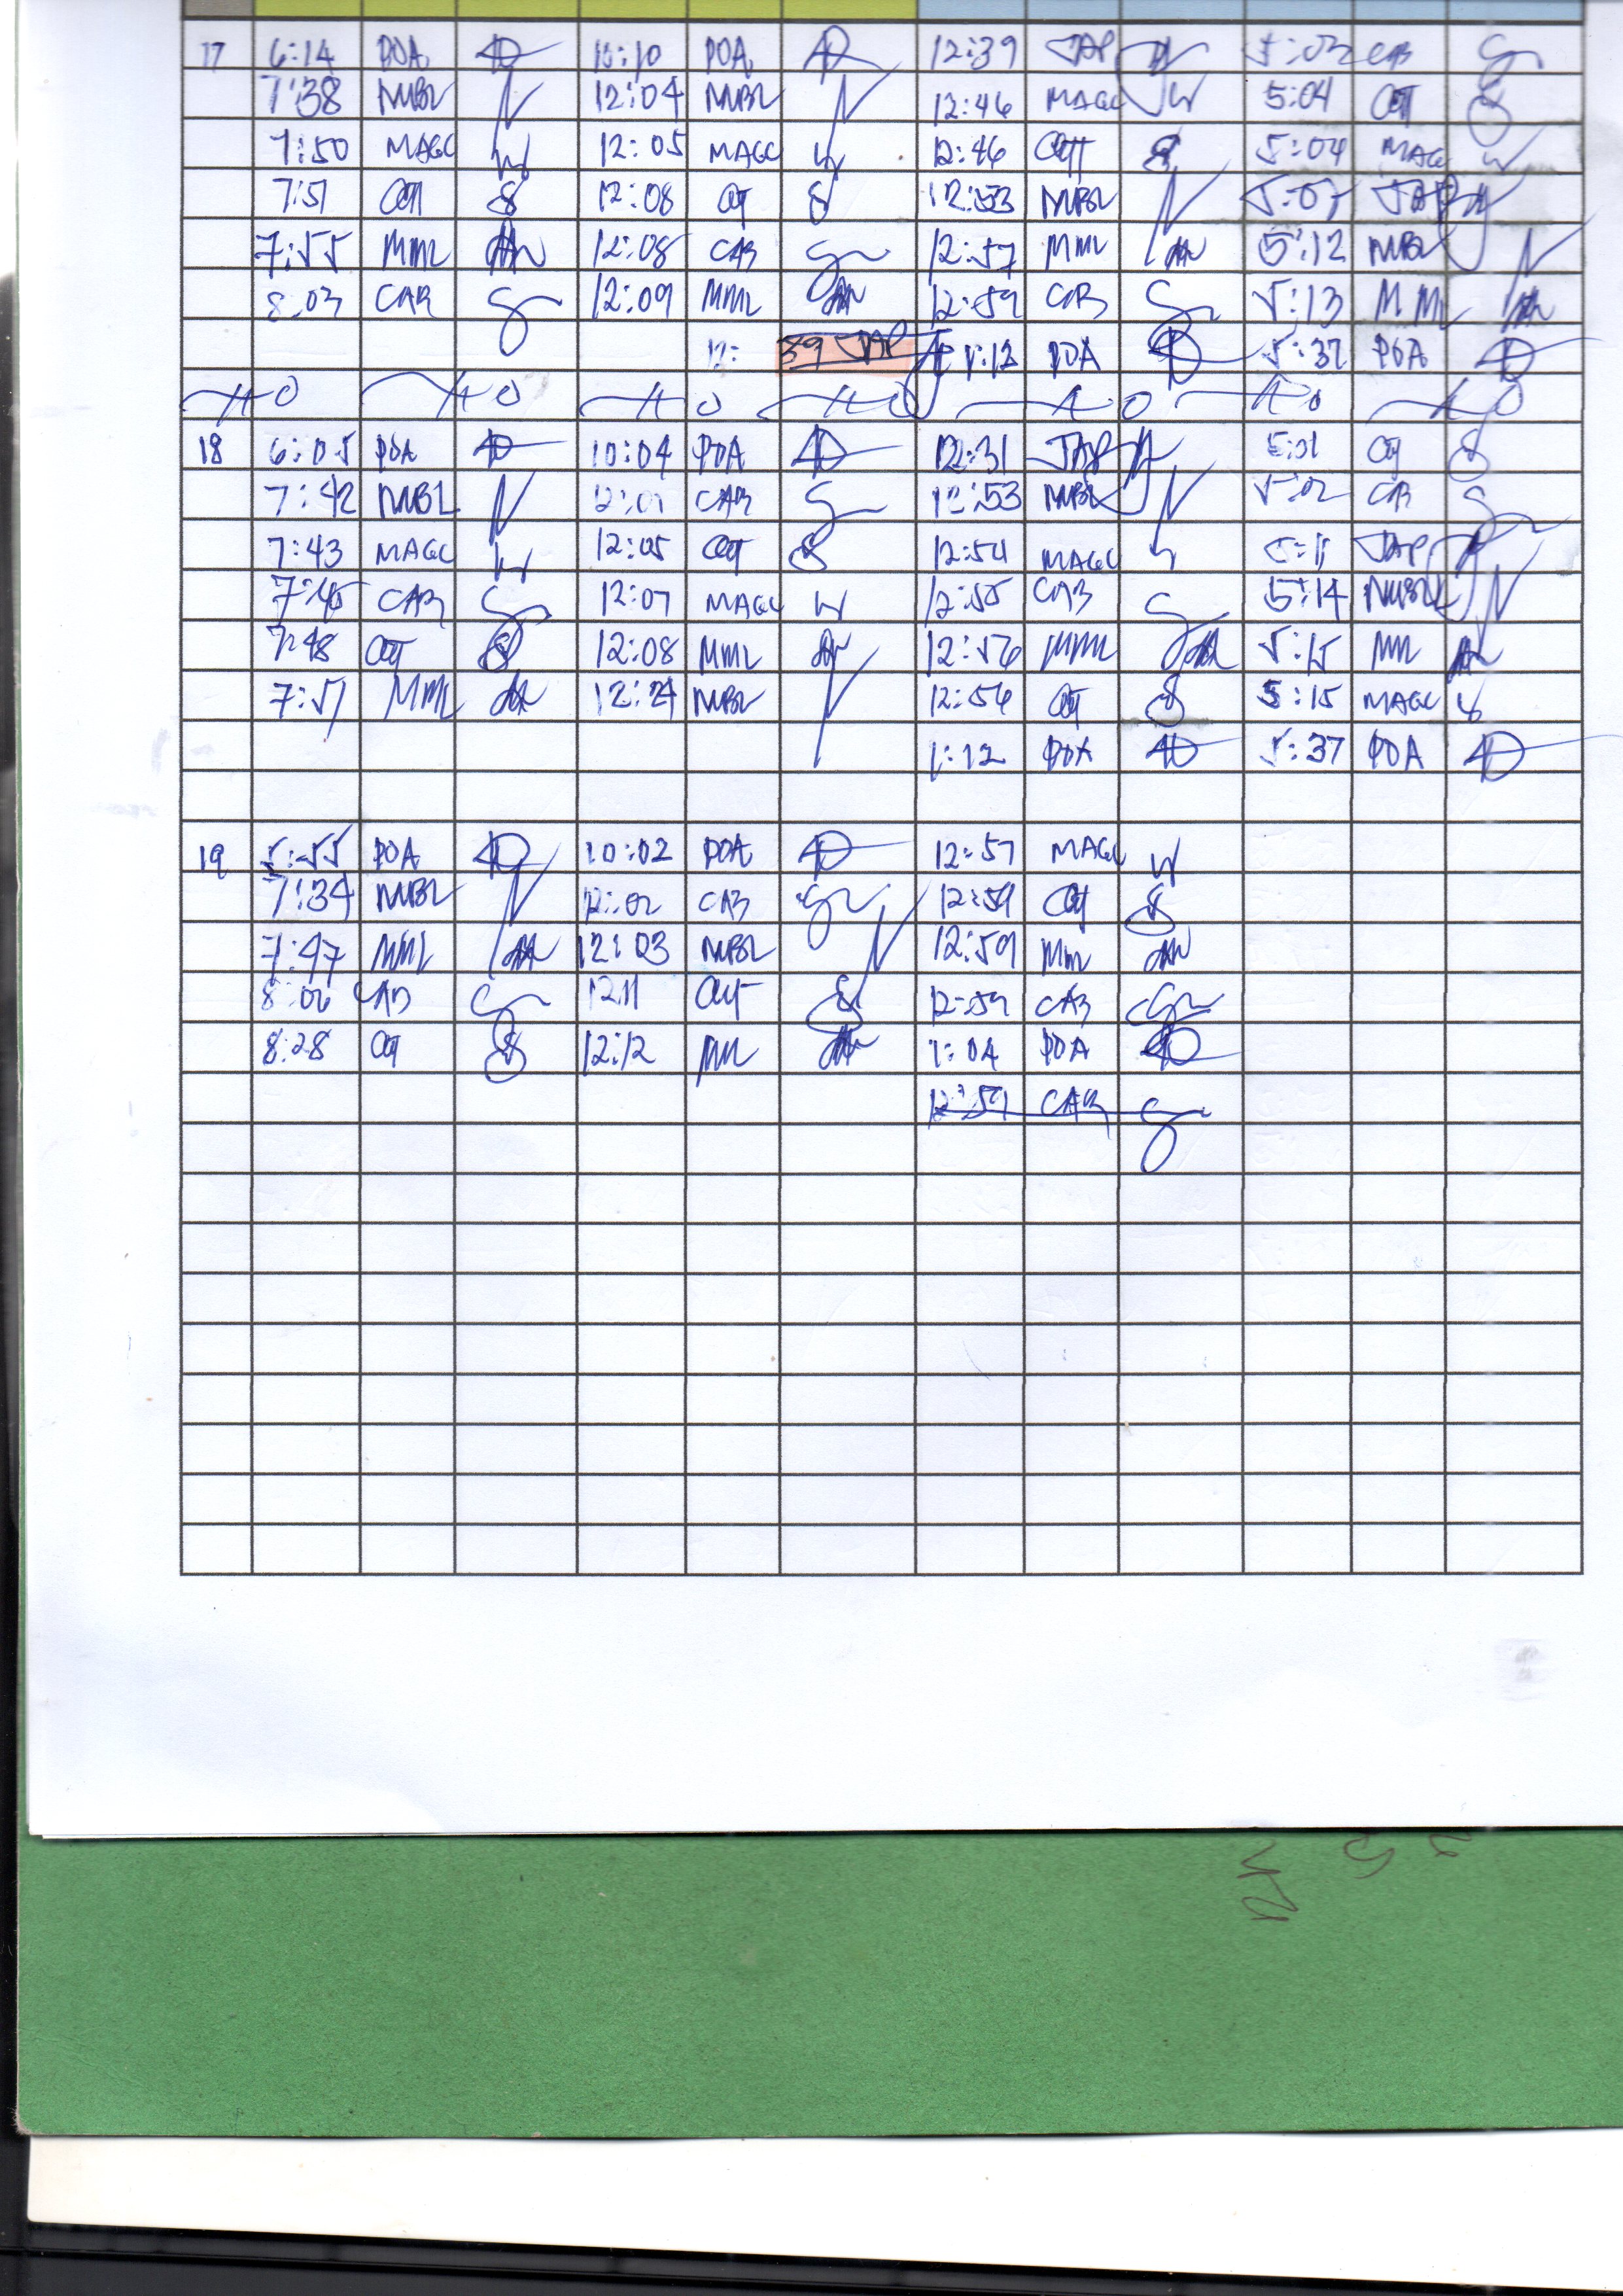 17 6:14 POA 10:10 POA 12:39 JAP 5:02 CAB
7:38 NMBL 12:04 NMBL 12:46 MAGC 5:04 COT
7:50 MAGC 12:05 MAGC 12:46 COTT 5:04 MAGC
7:51 COTT 12:08 COT 12:53 NMBL 5:07 JAP
7:55 MML 12:08 CAB 12:57 MML 5:12 NMBL
8:03 CAB 12:09 MML 12:59 CAB 5:13 MML
12: 39 JAP 1:12 POA 5:37 POA
18 6:05 POA 10:04 POA 12:31 JAP 5:01 COT
7:42 NMBL 12:01 CAB 12:53 NMBL 5:02 CAB
7:43 MAGC 12:05 COT 12:54 MAGC 5:11 JAP
7:45 CAB 12:07 MAGC 12:55 CAB 5:14 NMBL
7:48 COT 12:08 MML 12:56 MML 5:15 MML
7:51 MML 12:21 NMBL 12:56 COT 5:15 MAGC
1:12 POA 5:37 POA
19 5:55 POA 10:02 POA 12:57 MAGC
7:34 NMBL 12:02 CAB 12:59 COT
7:47 MML 12:03 NMBL 12:59 MML
8:06 CAB 12:11 COT 12:59 CAB
8:28 COT 12:12 MML 1:04 POA
12:59 CAB